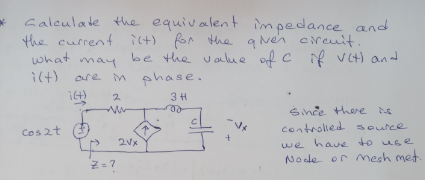 * Calculate the equivalent impedance and
the current i(t) for the given circuit.
what may be the value of C if V(t) and
i(t) are in phase.
i(t) 2 3H
cos2t 2Vx C - Vx +
Z=?
Since there is
controlled source
we have to use
Node or mesh met.